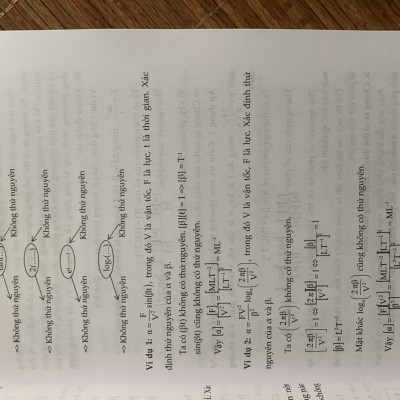 => Không thứ nguyên Không thứ nguyên
2(......)
=> Không thứ nguyên Không thứ nguyên
e^(......)
=> Không thứ nguyên Không thứ nguyên
log(...)
=> Không thứ nguyên Không thứ nguyên
Ví dụ 1: α = F/V² sin(βt), trong đó V là vận tốc, F là lực, t là thời gian. Xác
định thứ nguyên của α và β.
Ta có (βt) không có thứ nguyên. [β][t] = 1 => [β] = T⁻¹
sin(βt) cũng không có thứ nguyên.
Vậy [α] = [F]/[V²] = [MLT⁻²]/[LT⁻¹]² = ML⁻¹
Ví dụ 2: α = FV²/β² log(2πβ/V²), trong đó V là vận tốc, F là lực. Xác định thứ
nguyên của α và β.
Ta có (2πβ/V²) không có thứ nguyên.
[2πβ/V²] = 1 ⇔ [2π][β]/[V²] = 1 ⇔ [β]/[LT⁻¹]² = 1
[β] = L²T⁻²
Mặt khác log(2πβ/V²) cũng không có thứ nguyên.